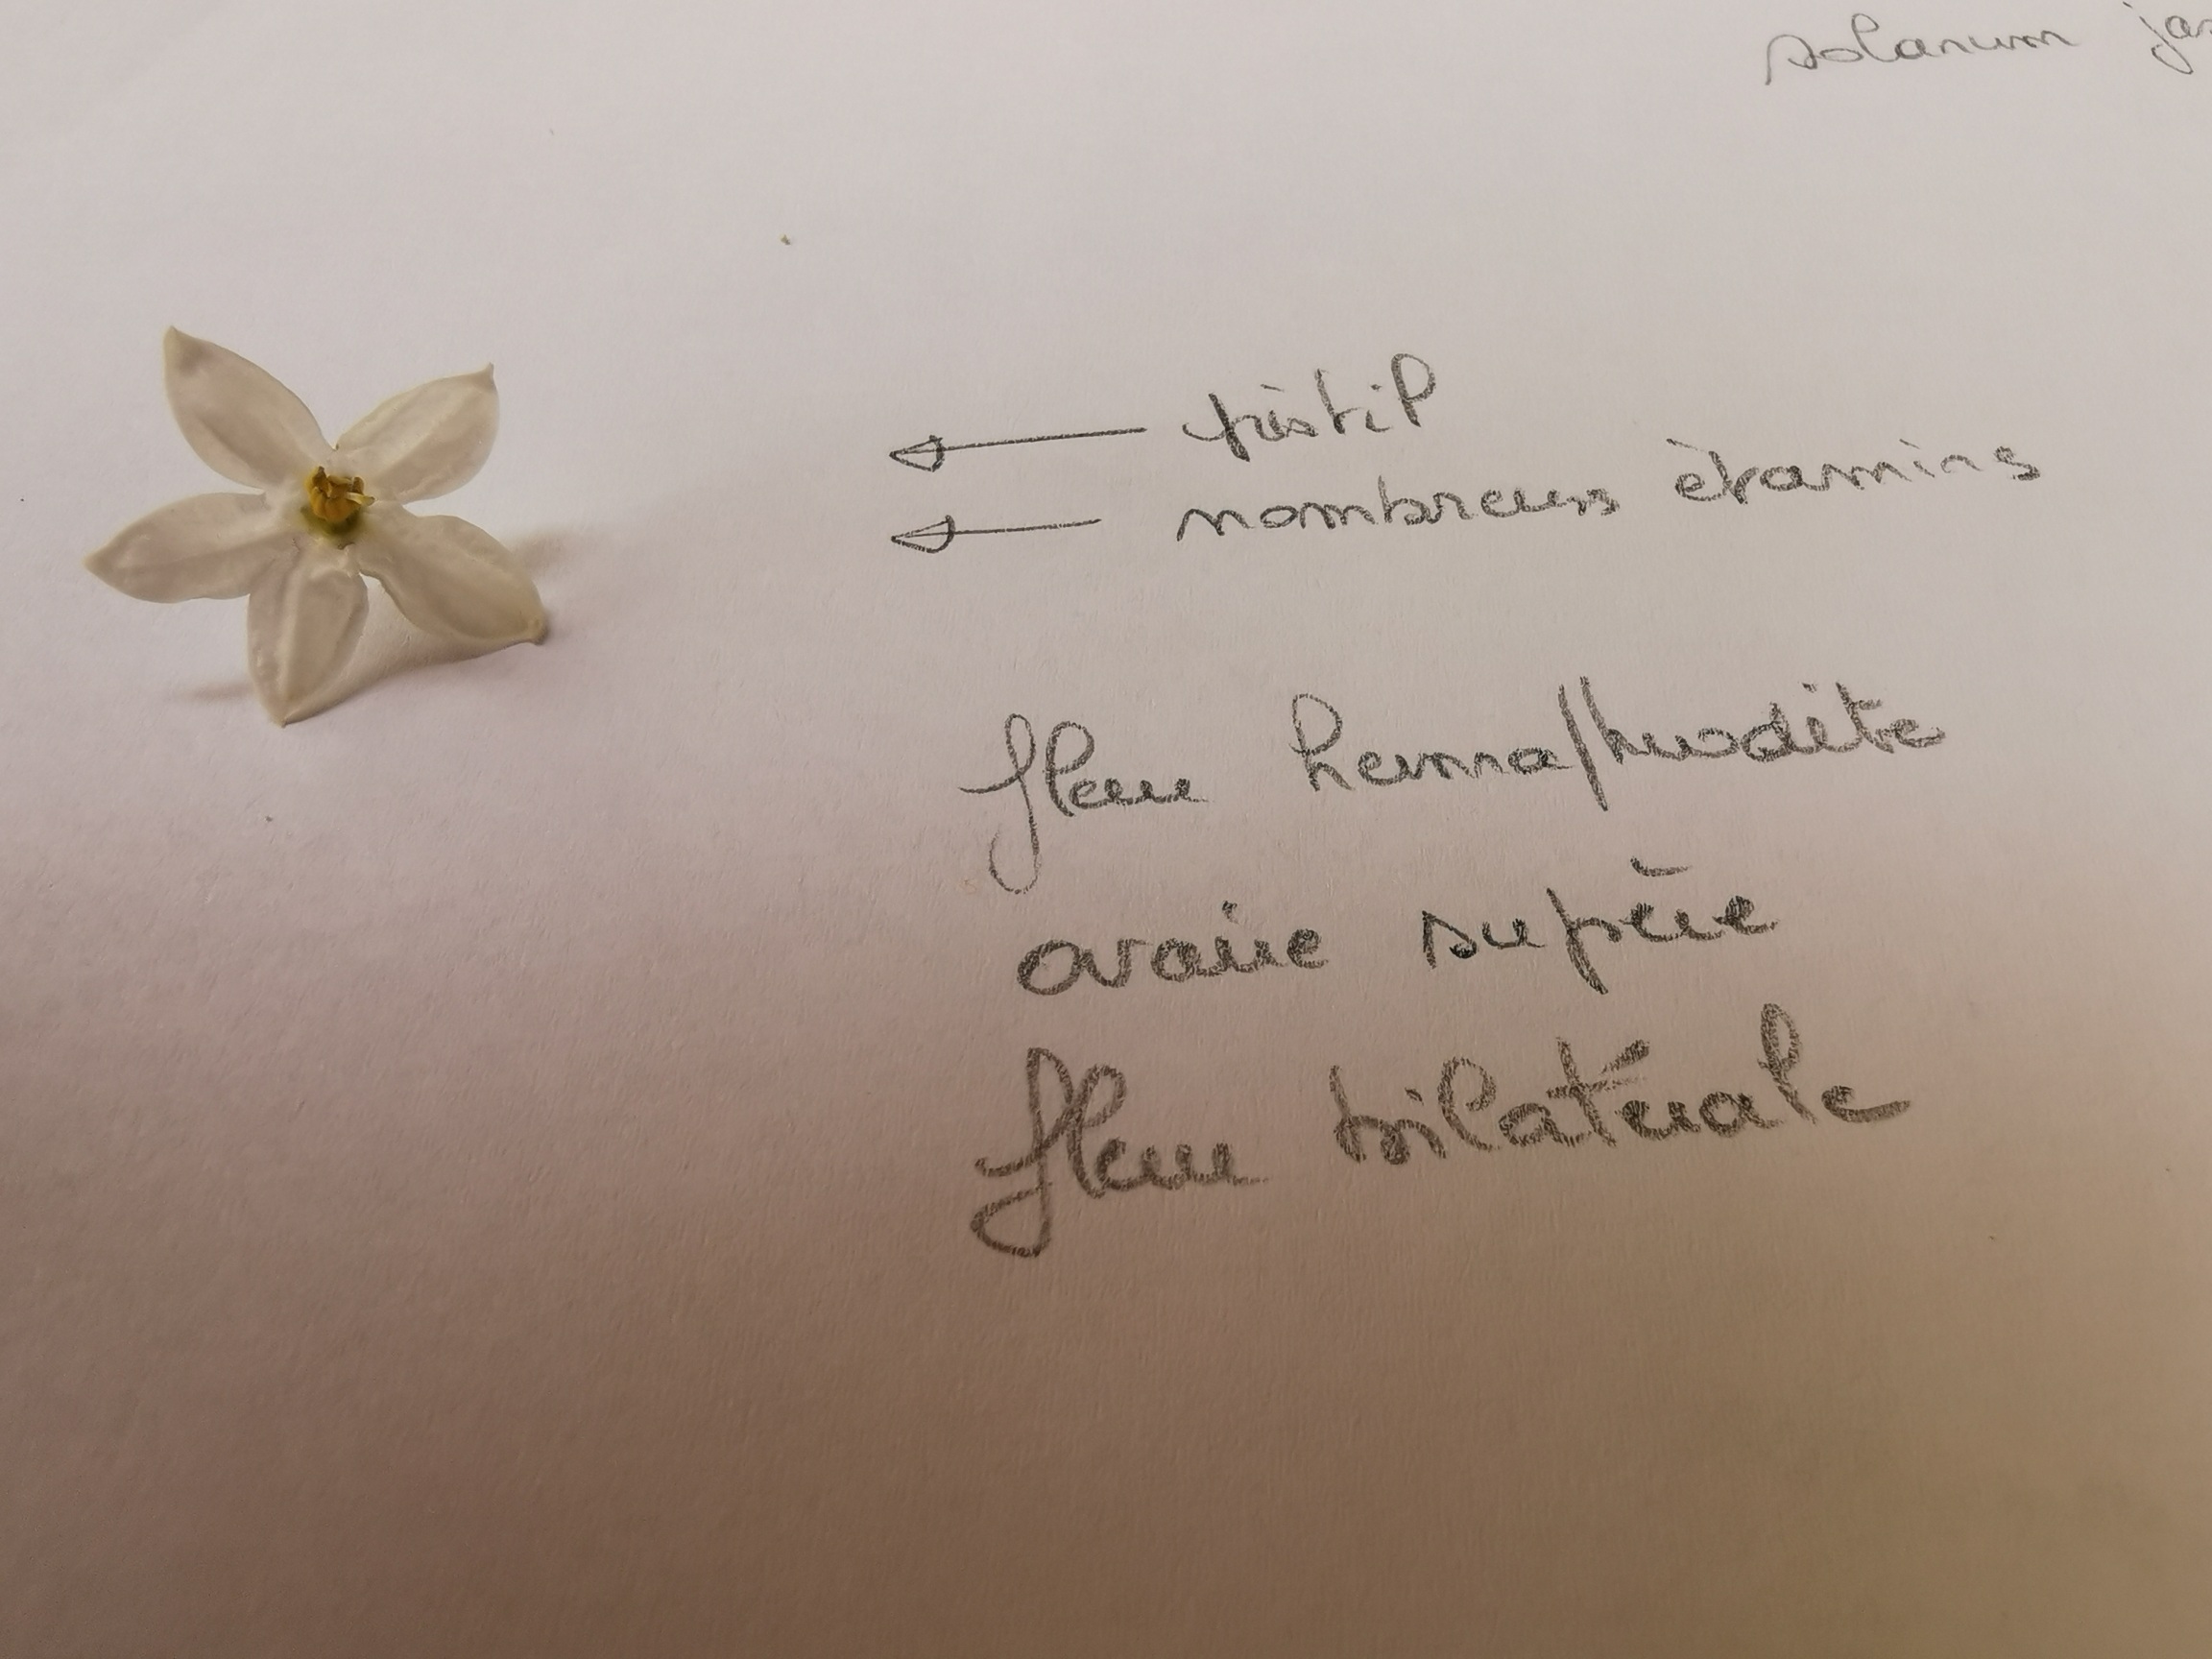 solanum jas
pistil
nombreuses étamines
fleur hermaphrodite
ovaire supère
fleur bilatérale